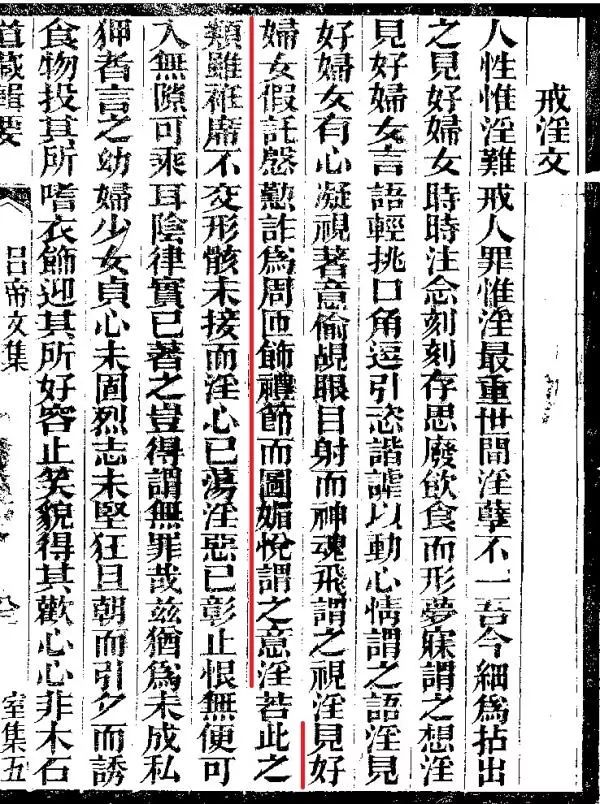 戒淫文
人性惟淫難戒人罪惟淫最重世間淫孽不一吾今細爲拈出
之見好婦女時時注念刻刻存思廢飲食而形夢寐謂之想淫
見好婦女言語輕挑口角逗引恣諧謔以動心情謂之語淫見
好婦女有心凝視著意偷覷眼目射而神魂飛謂之視淫見好
婦女假託慇懃詐爲周匝飾禮節而圖媚悅謂之意淫若此之
類雖袵席不交形骸未接而淫心已蕩淫惡已彰止恨無便可
入無隙可乘耳陰律實已著之豈得謂無罪哉茲猶爲未成私
狎者言之幼婦少女貞心未固烈志未堅狂旦朝而引夕而誘
食物投其所嗜衣飾迎其所好容止笑貌得其歡心心非木石
道藏輯要
呂帝文集
室集五